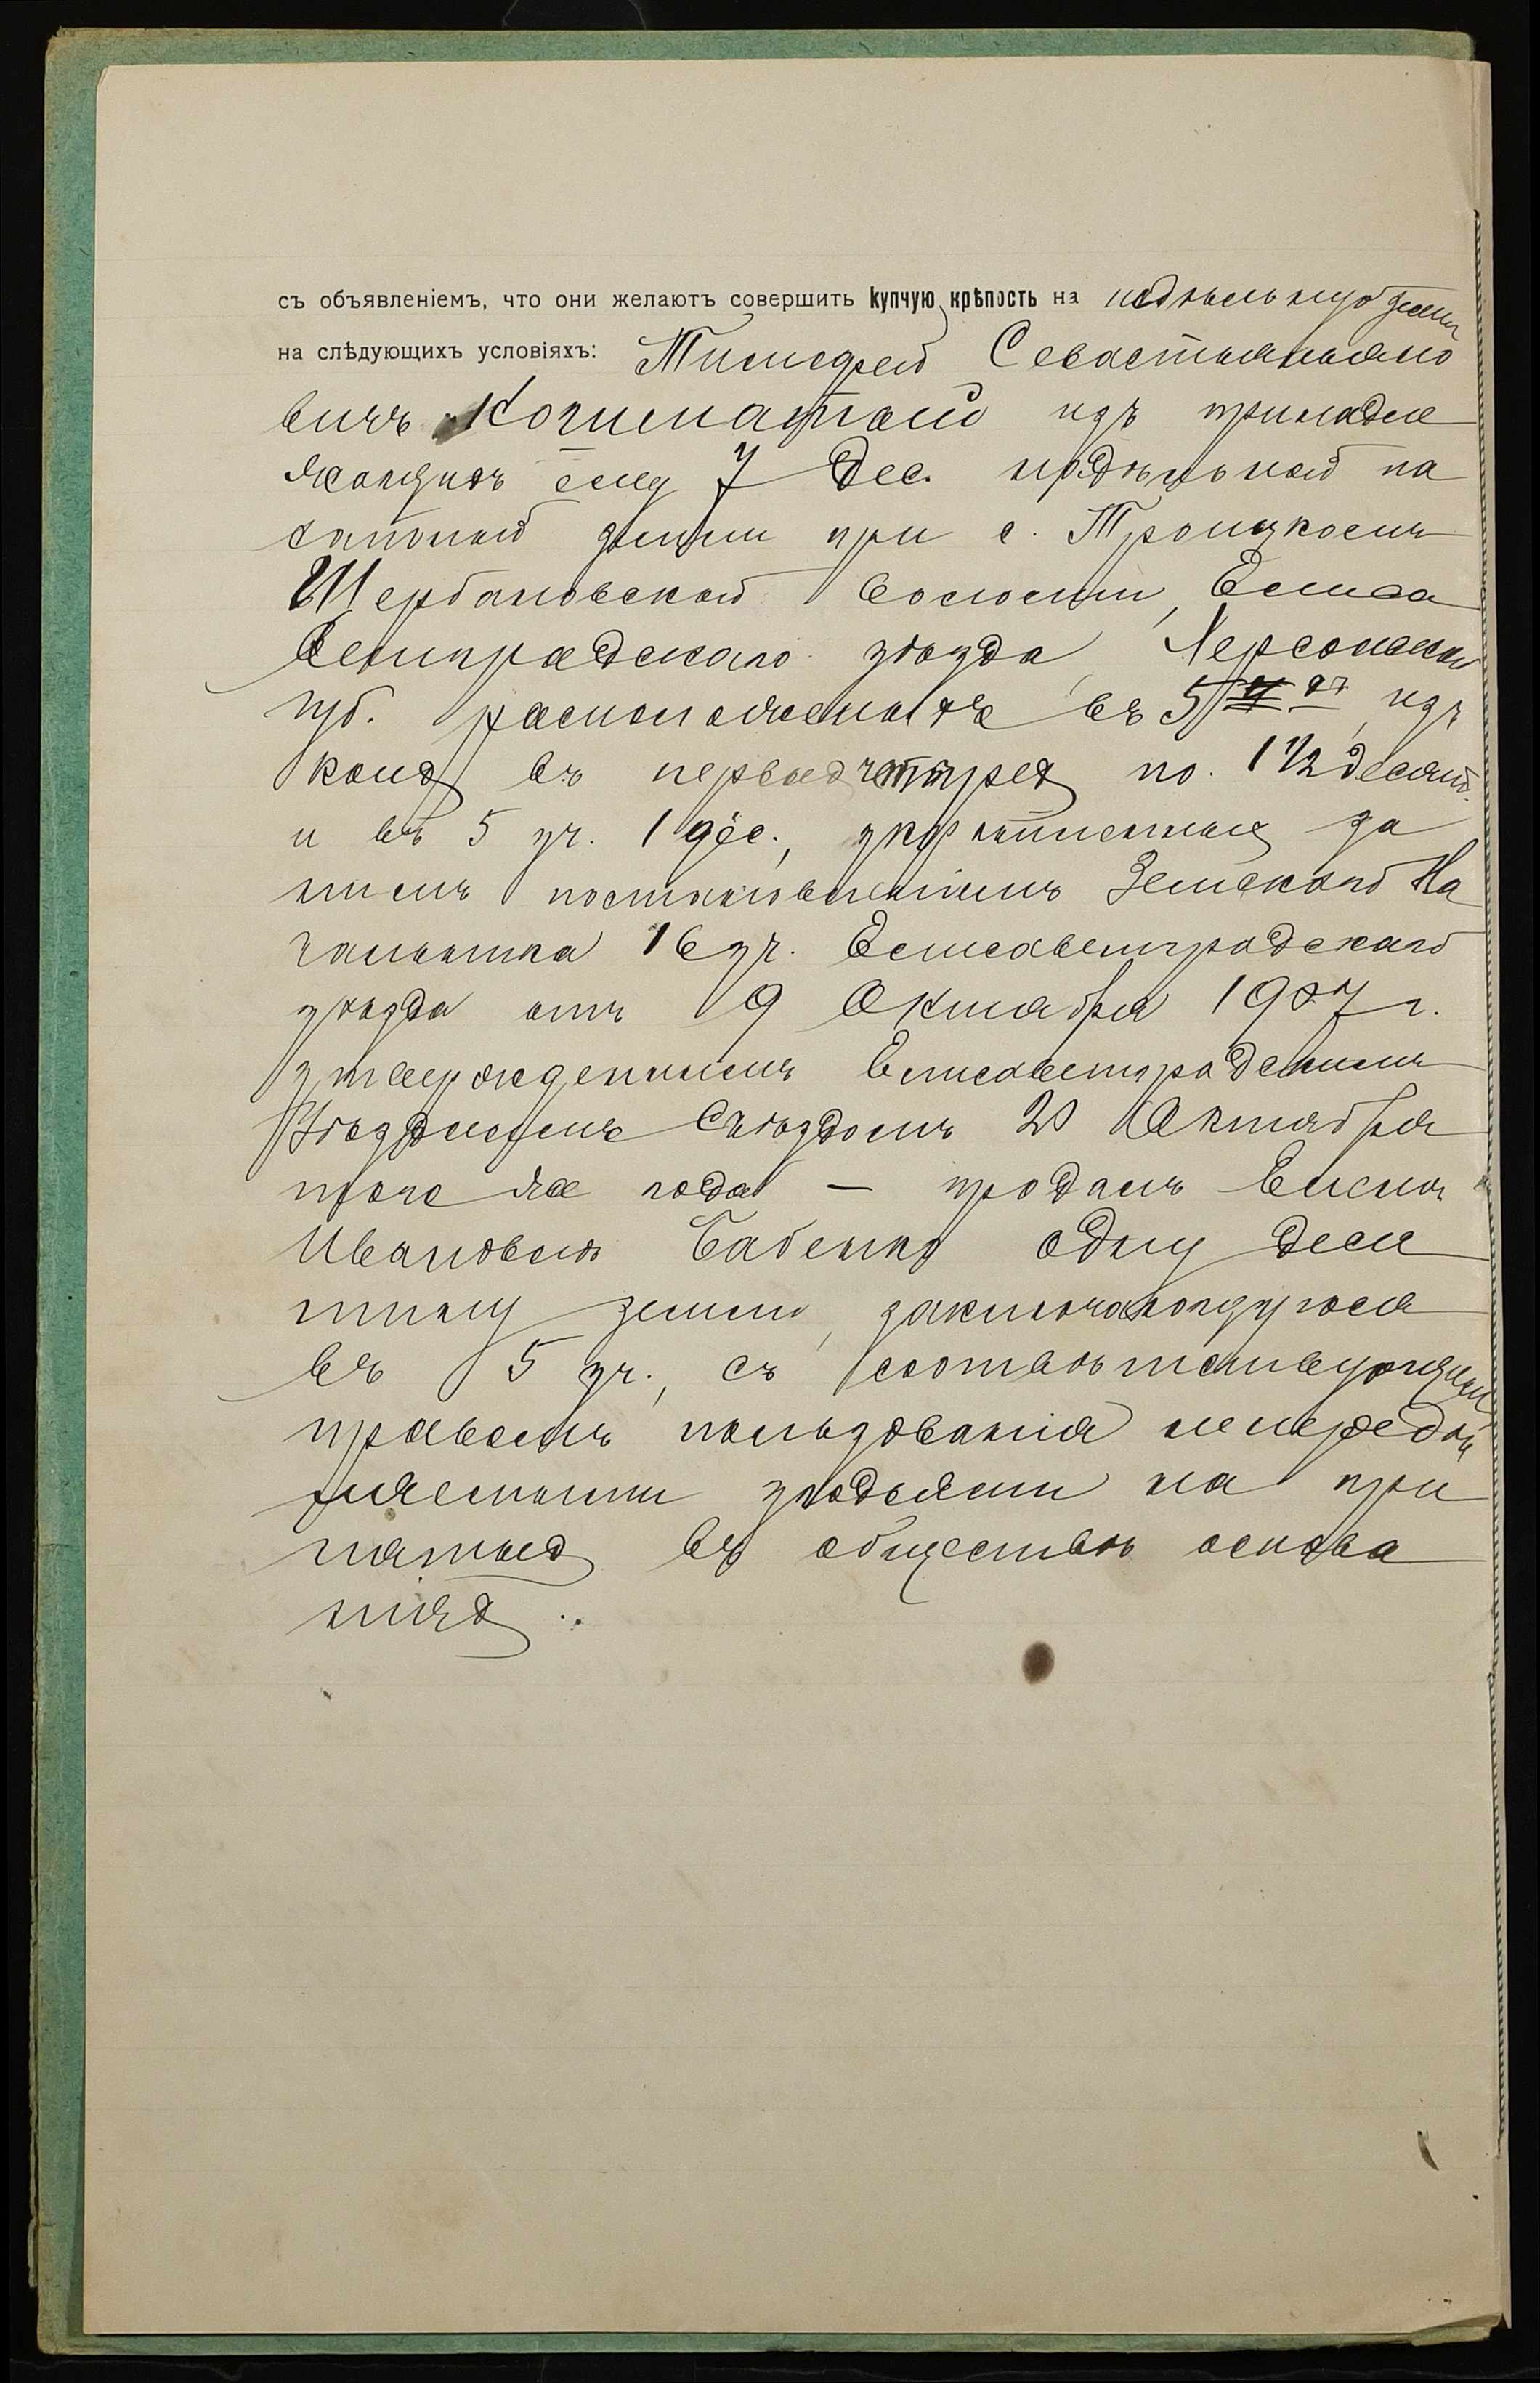 съ объявленіемъ, что они желаютъ совершить купчую крѣпость на надѣльную землю
на слѣдующихъ условіяхъ: Тимофей Севастьяно
вичъ изъ принадле
жащихъ ему 7 дес. надѣльной па
хатной земли при с. Троицкомъ
Щербановской волости, Елиса
ветградскаго уѣзда, Херсонской
губ. расположенныхъ въ 5 уч., изъ
коихъ въ первыхъ четырехъ по 1 1/2 десят.
и въ 5 уч. 1 дес., укрѣпленныхъ за
нимъ постановленіемъ Земскаго На
чальника 16 уч. Елисаветградскаго
уѣзда отъ 9 Октября 1907 г.
утвержденнымъ Елисаветградскимъ
Уѣзднымъ Съѣздомъ 20 Октября
того же года — продалъ Еленѣ
Ивановнѣ Бабенко одну деся
тину земли, заключающуюся
въ 5 уч., съ соотвѣтствующимъ
правомъ пользованія непередѣ
ляемыми угодьями на при
нятыхъ въ обществѣ основа
ніяхъ.